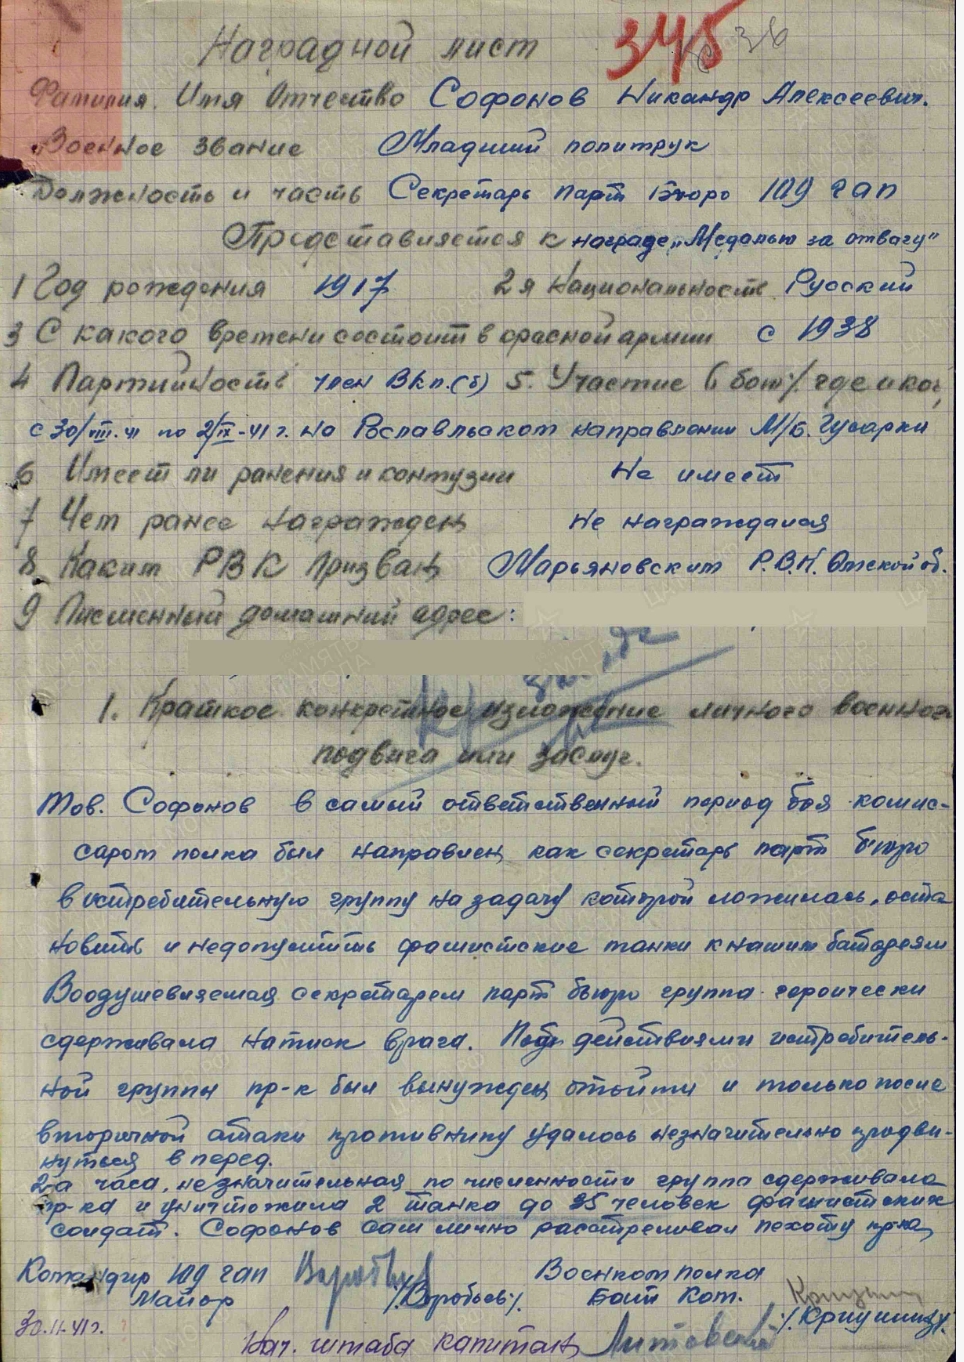 345 36
Наградной лист
Фамилия. Имя Отчество Софонов Никандр Алексеевич.
Военное звание Младший политрук
Должность и часть Секретарь парт бюро 109 гап
Представляется к награде „Медалью за отвагу"
1 Год рождения 1917 2я Национальность Русский
3 С какого времени состоит в красной армии с 1938
4 Партийность член ВКп.(б) 5. Участие в боях где и ког
с 30/VIII-41 по 2/IX-41 г. на Рославльском направлении М/Б. Гусарки
6 Имеет ли ранения и контузии Не имеет
7 Чем ранее награжден Не награждался
8. Каким РВК Призван Марьяновским Р.В.К. Омской об.
9 Писменный домашний адрес:
1. Краткое конкретное изложение личного военного
подвига или заслуг.
Тов. Софонов в самый ответственный период боя комис-
саром полка был направлен как секретарь парт бюро
в истребительную группу на задачу которой ложилась, оста
новить и недопустить фашистские танки к нашим батареям
Воодушевляемая секретарем парт бюро группа героически
сдерживала натиск врага. Под действиями истребитель-
ной группы пр-к был вынужден отойти и только после
вторичной атаки противнику удалось незначительно продви-
нуться вперед.
2-а часа, незначительная по численности группа сдерживала
пр-ка и уничтожила 2 танка до 35 человек фашистских
солдат. Софонов сам лично расстреливал пехоту пр-ка
Командир 109 гап Воробьев Военком полка
Майор /Воробьев/. Бат Ком. /.Криушин/.
30.11.41г.
Нач. штаба капитан Литовский